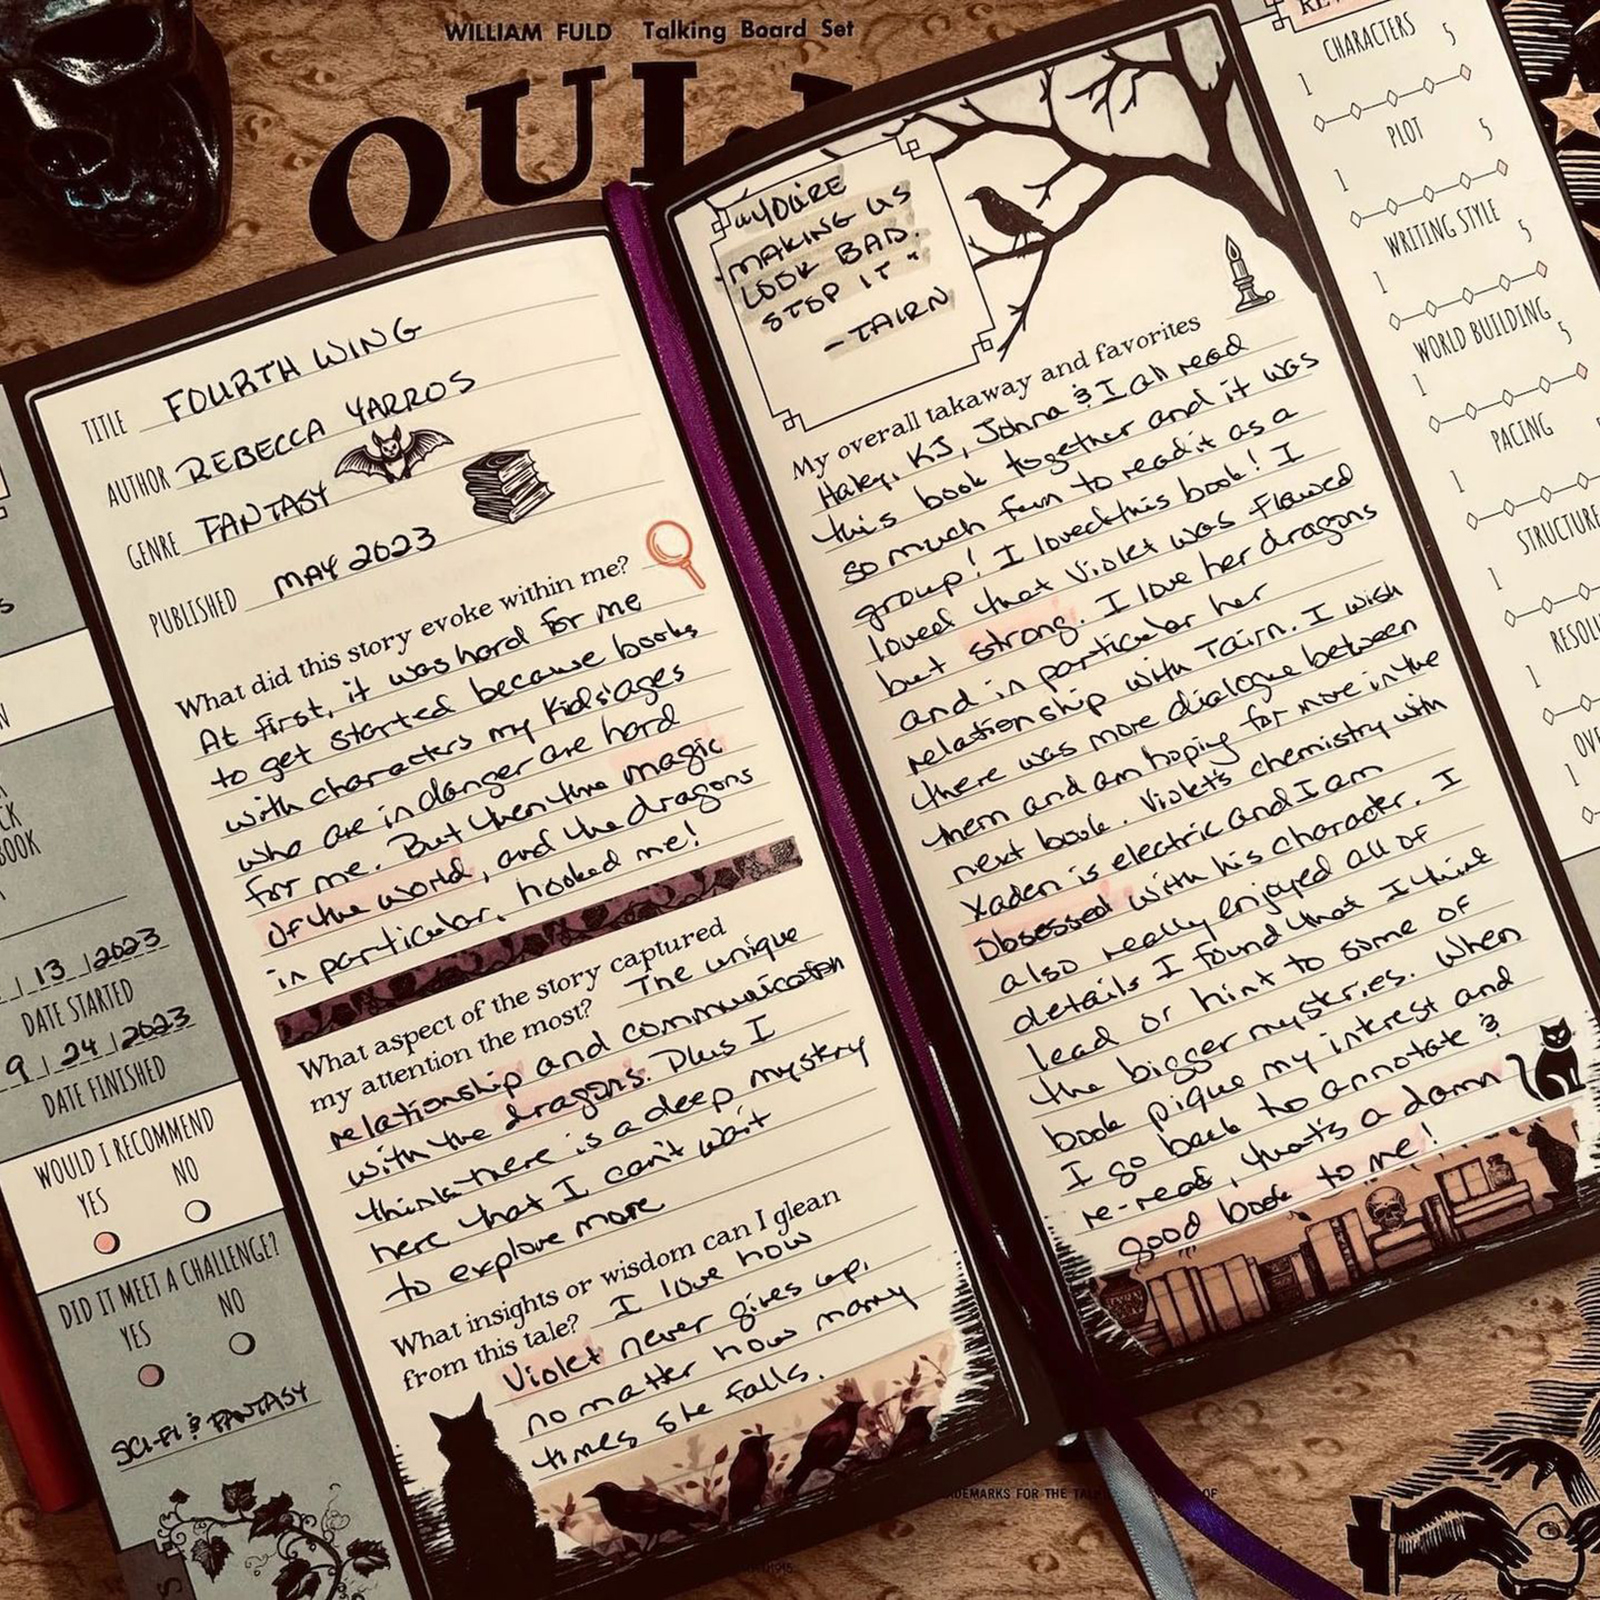 WILLIAM FULD Talking Board Set
OUI
TITLE FOURTH WING
AUTHOR REBECCA YARROS
GENRE FANTASY
PUBLISHED MAY 2023
What did this story evoke within me?
At first, it was hard for me
to get started because books
with characters my kids' ages
who are in danger are hard
for me. But then the magic
of the world, and the dragons
in particular, hooked me!
What aspect of the story captured
my attention the most? The unique
relationship and communication
with the dragons. Plus I
think there is a deep mystery
here that I can't wait
to explore more
What insights or wisdom can I glean
from this tale? I love how
Violet never gives up,
no matter how many
times she falls.
BOOK
13 | 2023
DATE STARTED
9 | 24 | 2023
DATE FINISHED
WOULD I RECOMMEND
YES NO
DID IT MEET A CHALLENGE?
YES NO
SCI-FI & FANTASY
"YOU'RE
MAKING US
LOOK BAD.
STOP IT"
-TAIRN
My overall takaway and favorites
KJ, & I all read
this book together and it was
so much fun to read it as a
group! I loved this book! I
loved that Violet was flawed
but strong. I love her dragons
and in particular her
relationship with Tairn. I wish
there was more dialogue between
them and am hoping for more in the
next book. Violet's chemistry with
Xaden is electric and I am
obsessed with his character. I
also really enjoyed all of
details I found that I think
lead or hint to some of
the bigger mysteries. When
book pique my interest and
I go back to annotate &
re-read, that's a damn
good book to me!
CHARACTERS
1 5
PLOT
1 5
WRITING STYLE
1 5
WORLD BUILDING
1 5
PACING
1
STRUCTURE
1
RESOLU
1
OVE
1
DEMARKS FOR THE TAL
OF